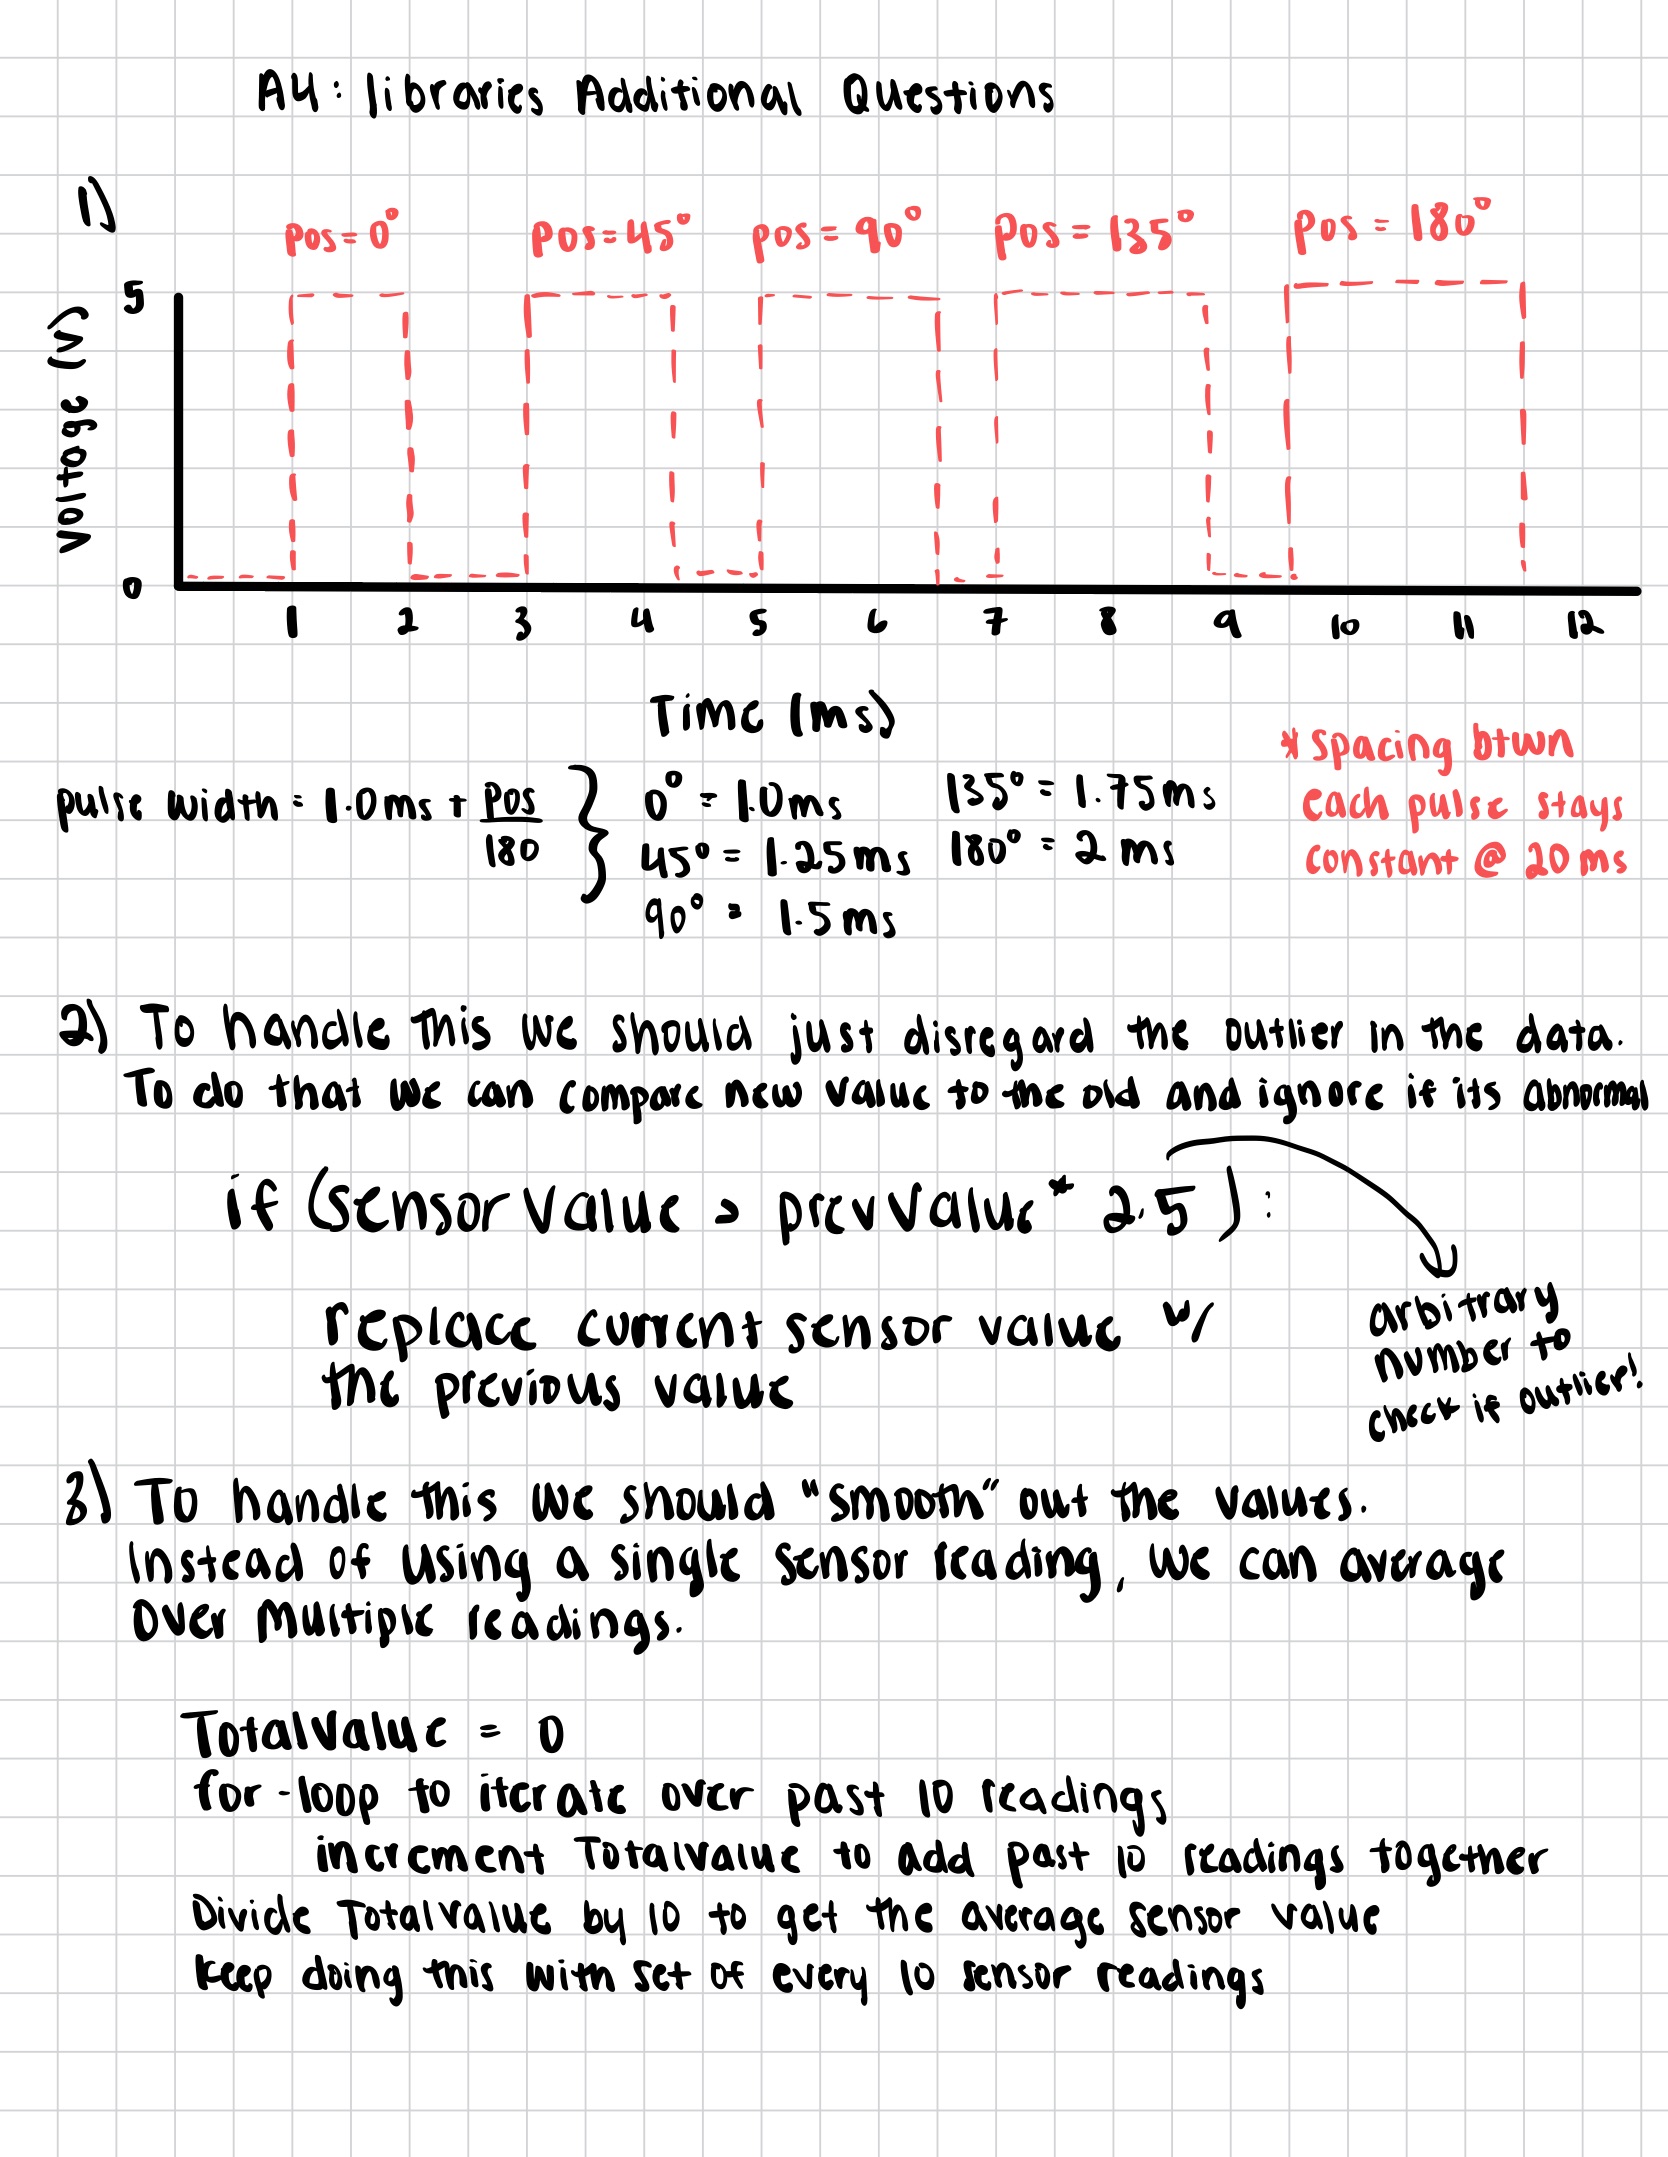 A4: libraries Additional Questions
1)
pos=0° pos=45° pos= 90° pos = 135° pos = 180°
5
Voltage (V)
0
1 2 3 4 5 6 7 8 9 10 11 12
Time (ms)
* spacing btwn
each pulse stays
constant @ 20 ms
pulse width = 1.0ms + pos/180 } 0° = 1.0ms 135° = 1.75ms
45° = 1.25ms 180° = 2 ms
90° = 1.5 ms
2) To handle this we should just disregard the outlier in the data.
To do that we can compare new value to the old and ignore if its abnormal
if (sensorValue > prevValue * 2.5 ) :
replace current sensor value w/
the previous value
arbitrary
number to
check if outlier!
3) To handle this we should "smooth" out the values.
Instead of using a single sensor reading, we can average
over multiple readings.
TotalValue = 0
for-loop to iterate over past 10 readings
increment TotalValue to add past 10 readings together
Divide TotalValue by 10 to get the average sensor value
keep doing this with set of every 10 sensor readings